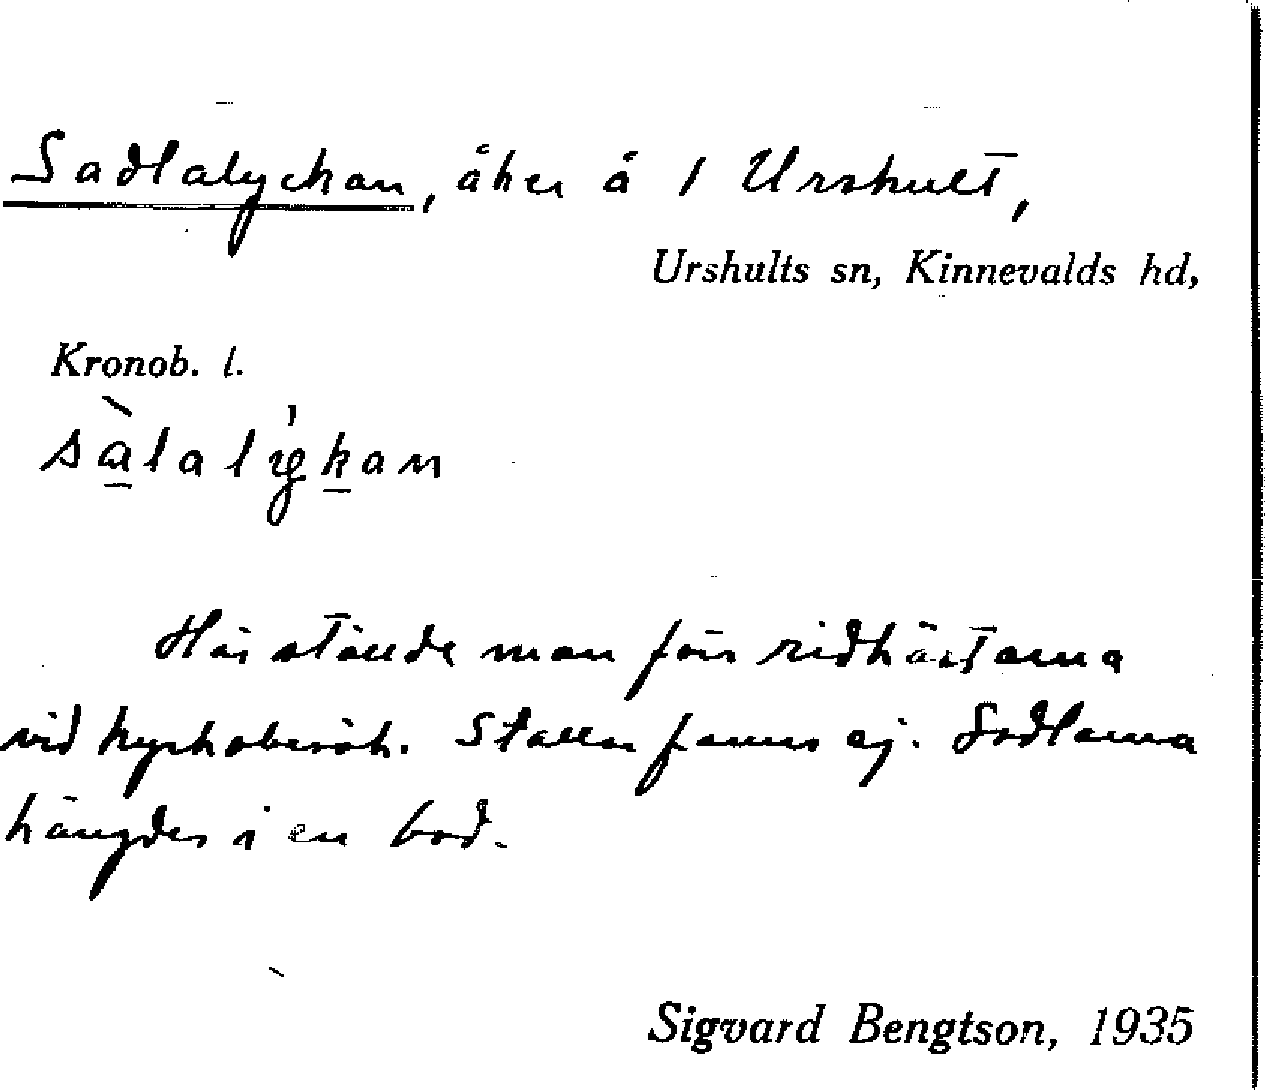 Sadlalyckan, åker å 1 Urshult,
Urshults sn, Kinnevalds hd,
Kronob. l.
Här ställde man förr ridhästarna
vid kyrkobesök. Stallar fanns ej. Sadlarna
hängdes i en bod.
Sigvard Bengtson, 1935